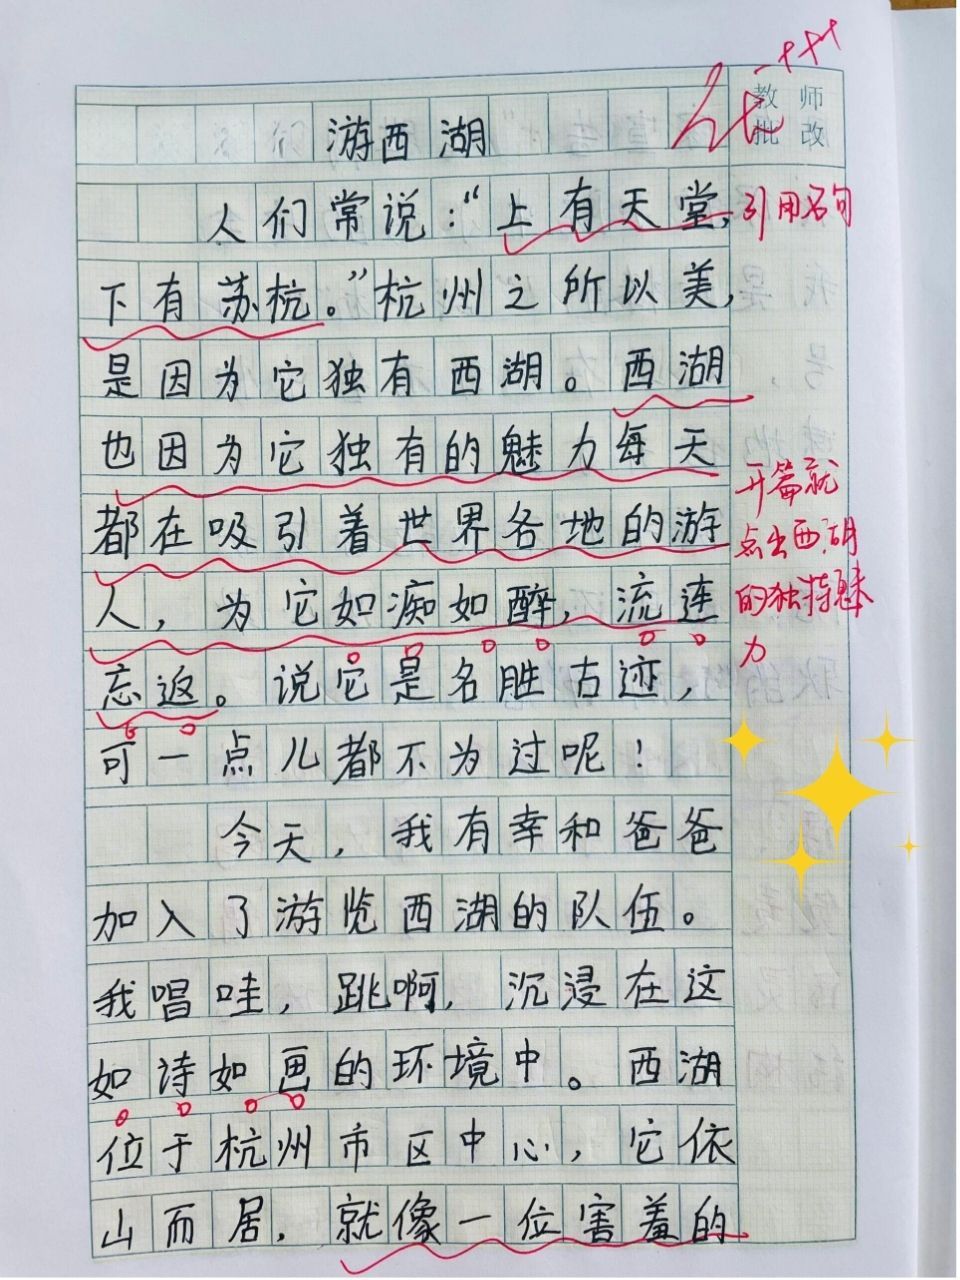 教师
批改
优
游西湖
人们常说：“上有天堂，
引用名句
下有苏杭。”杭州之所以美，
是因为它独有西湖。西湖
也因为它独有的魅力每天
都在吸引着世界各地的游
人，为它如痴如醉，流连
忘返。说它是名胜古迹，
开篇就
点出西湖
的独特魅
力
可一点儿都不为过呢！
今天，我有幸和爸爸
加入了游览西湖的队伍。
我唱哇，跳啊，沉浸在这
如诗如画的环境中。西湖
位于杭州市区中心，它依
山而居，就像一位害羞的